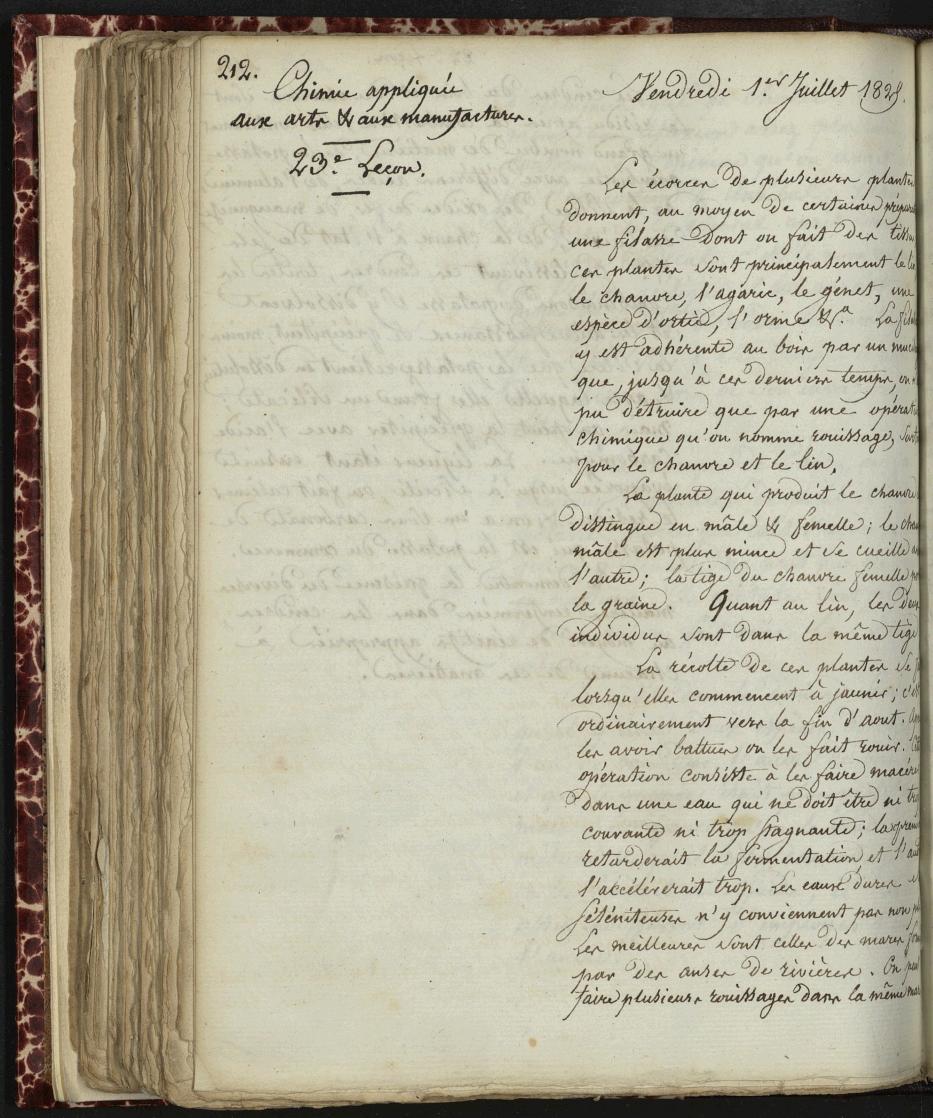 212.
Chimie appliquée
aux arts & aux manufactures.
23.e Leçon.
Vendredi 1.er Juillet 1825.
Les écorces de plusieurs plantes
donnent, au moyen de certaines
une filasse dont on fait des tissus
ces plantes sont principalement le
le chanvre, l'agaric, le génet, une
espèce d'ortie, l'orme &.a La
y est adhérente au bois par un
que, jusqu'à ces derniers temps, on
pu détruire que par une
chimique qu'on nomme rouissage,
pour le chanvre et le lin.
La plante qui produit le chanvre
distingue en mâle & femelle; le
mâle est plus mince et se cueille
l'autre; la tige du chanvre femelle
la graine. Quant au lin, les
individus sont dans la même tige
La récolte de ces plantes se
lorsqu'elles commencent à jaunir;
ordinairement vers la fin d'aout.
les avoir battues on les fait rouir.
opération consiste à les faire
dans une eau qui ne doit être ni
courante ni trop stagnante; la
retarderait la fermentation et
l'accélérerait trop. Les eaux dures
séléniteuses n'y conviennent pas non
Les meilleures sont celles des mares
par des anses de rivières. On
faire plusieurs rouissages dans la même